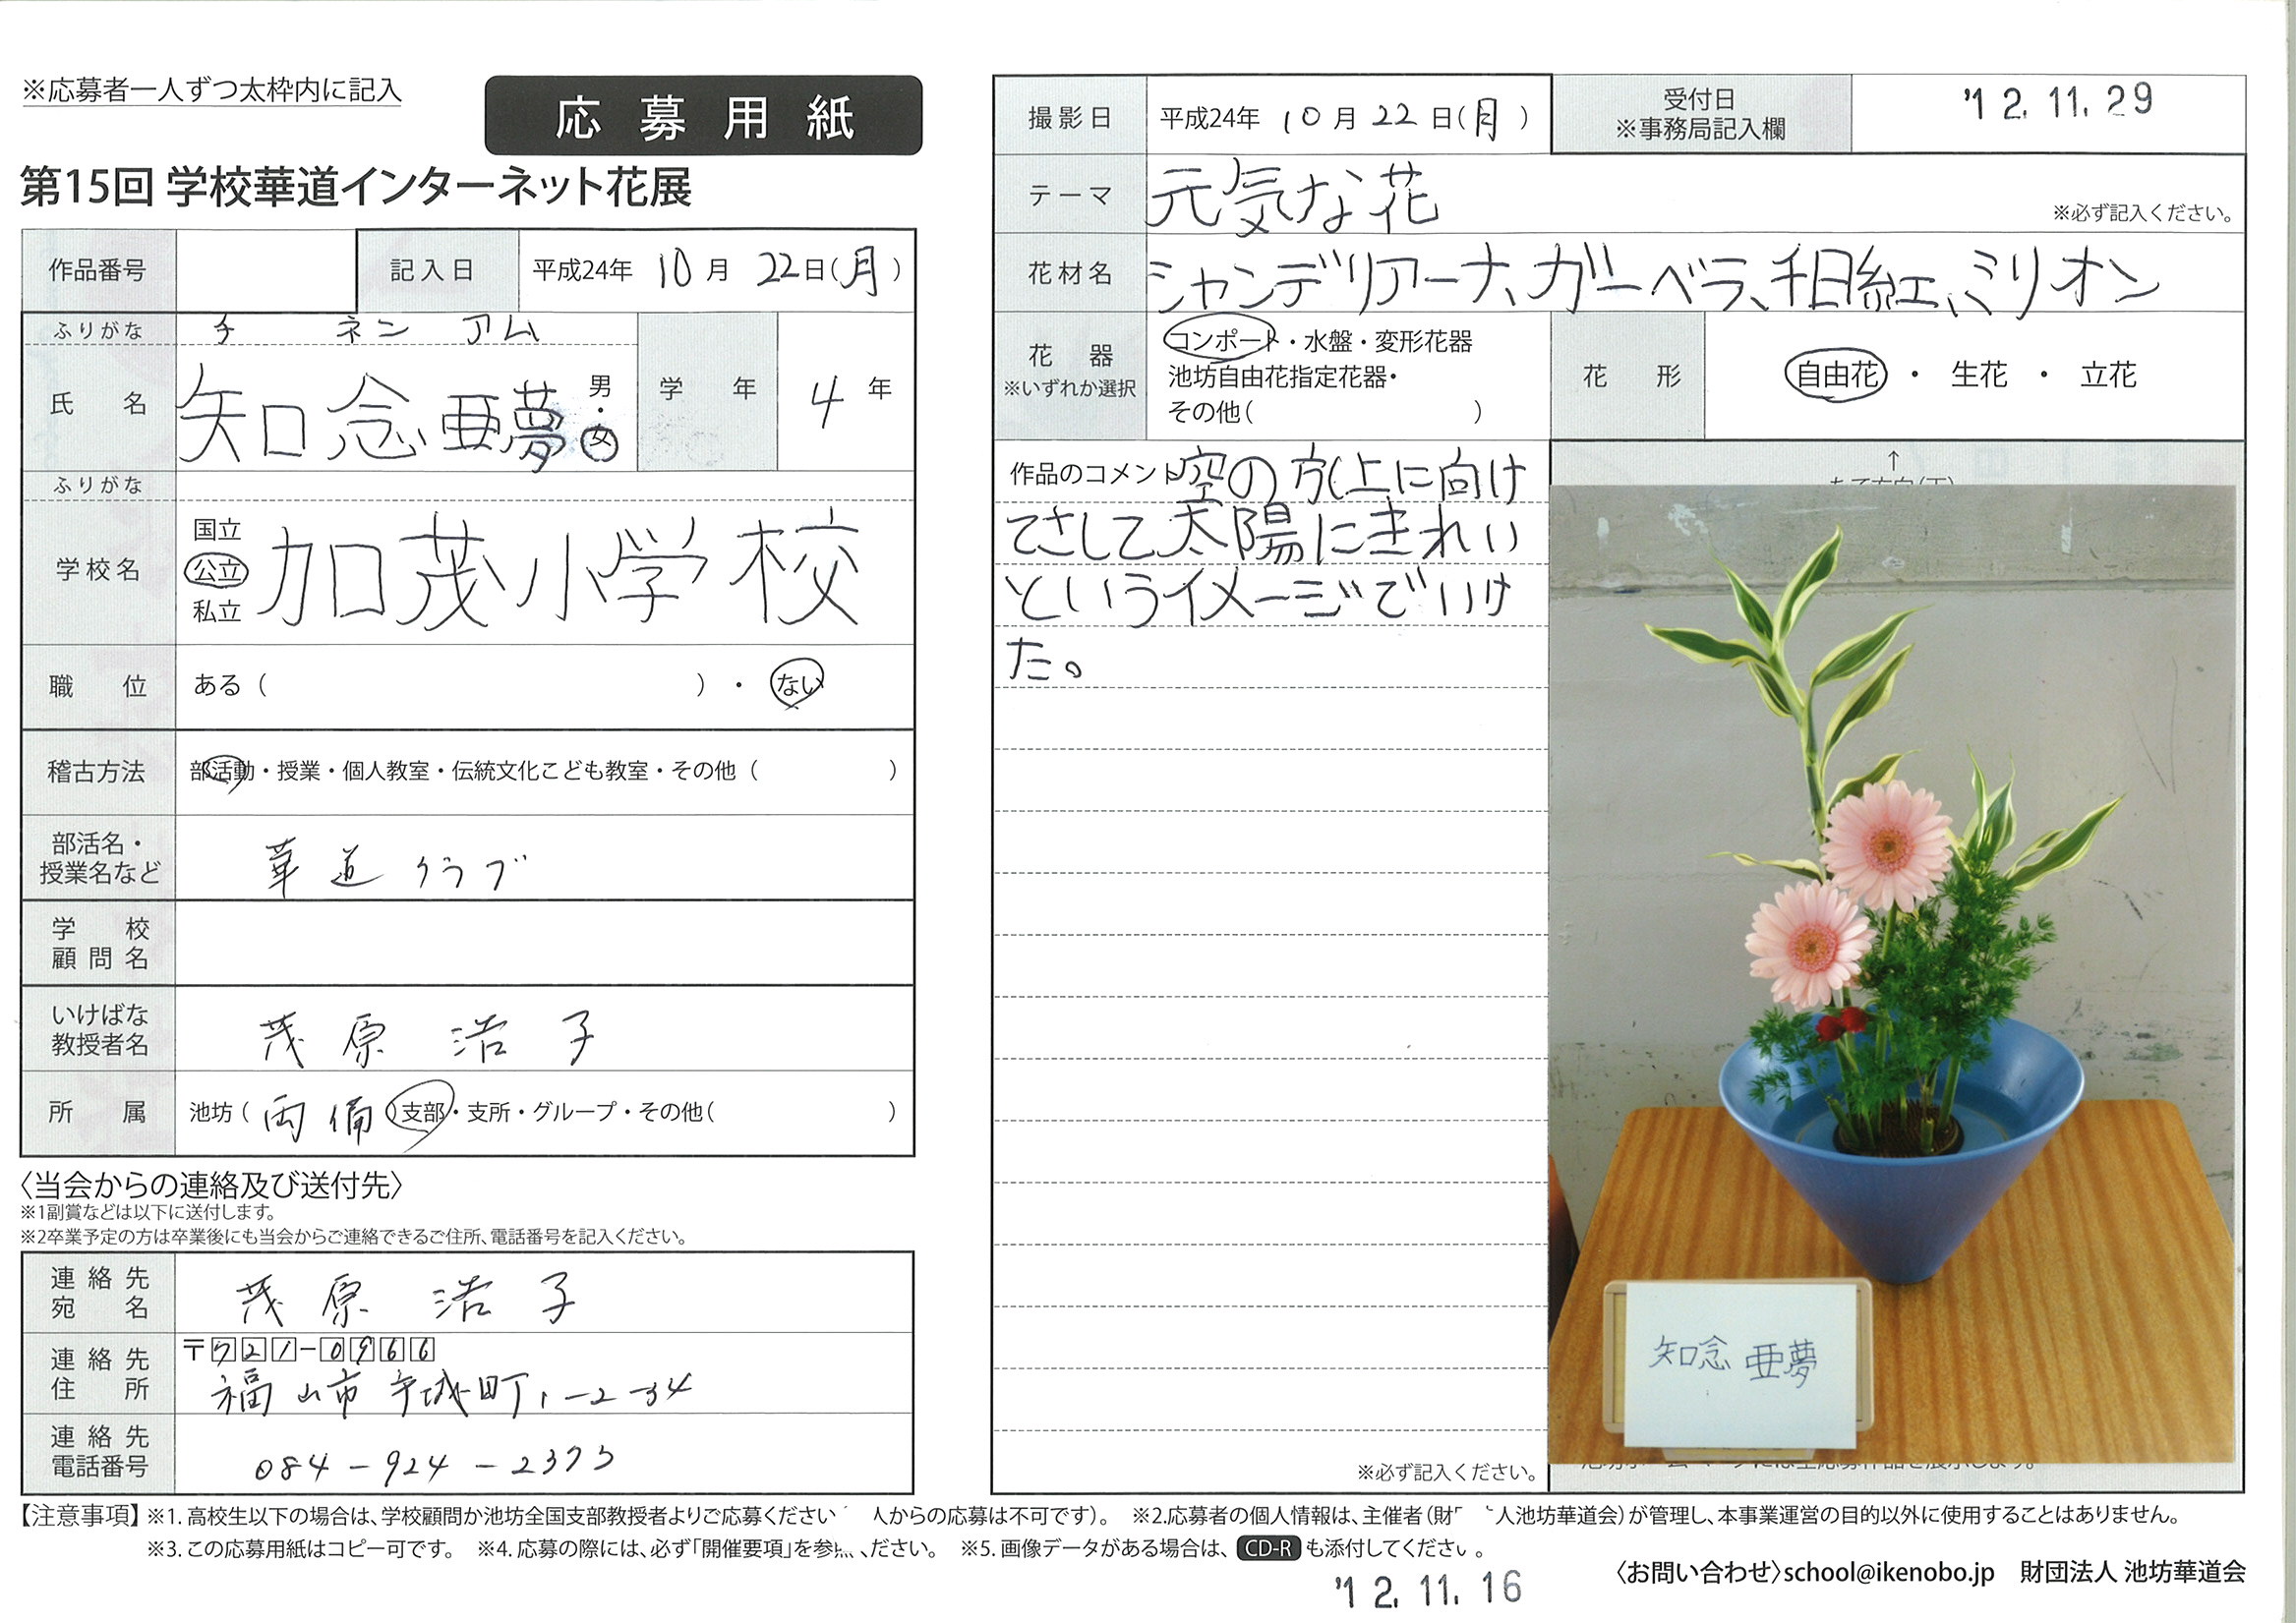 ※応募者一人ずつ太枠内に記入
応募用紙
第15回 学校華道インターネット花展
作品番号
記入日 平成24年 10月 22日(月)
ふりがな チ ネン アム
氏名 知念 亜夢 男・女
学年 4年
ふりがな
学校名 国立 公立 私立 加茂小学校
職位 ある( )・ない
稽古方法 部活動・授業・個人教室・伝統文化こども教室・その他( )
部活名・授業名など 華道クラブ
学校顧問名
いけばな教授者名 茂原 浩子
所属 池坊(両備)支部・支所・グループ・その他( )
〈当会からの連絡及び送付先〉
※1副賞などは以下に送付します。
※2卒業予定の方は卒業後にも当会からご連絡できるご住所、電話番号を記入ください。
連絡先宛名 茂原 浩子
連絡先住所 〒721-0966
福山市手城町1-2-34
連絡先電話番号 084-924-2375
撮影日 平成24年 10月 22日(月)
受付日 ※事務局記入欄 '12.11.29
テーマ 元気な花 ※必ず記入ください。
花材名 シャンデリアーナ、ガーベラ、千日紅、ミリオン
花器 ※いずれか選択 コンポート・水盤・変形花器
池坊自由花指定花器・
その他( )
花形 自由花・生花・立花
作品のコメント 空の方(上に向け
てさして太陽にきれい
というイメージでいけ
た。
※必ず記入ください。
↑
知念 亜夢
【注意事項】※1.高校生以下の場合は、学校顧問か池坊全国支部教授者よりご応募ください 人からの応募は不可です)。 ※2.応募者の個人情報は、主催者(財 人池坊華道会)が管理し、本事業運営の目的以外に使用することはありません。
※3.この応募用紙はコピー可です。 ※4.応募の際には、必ず「開催要項」を参 ください。 ※5.画像データがある場合は、CD-Rも添付してください。
'12.11.16
〈お問い合わせ〉school@ikenobo.jp 財団法人 池坊華道会